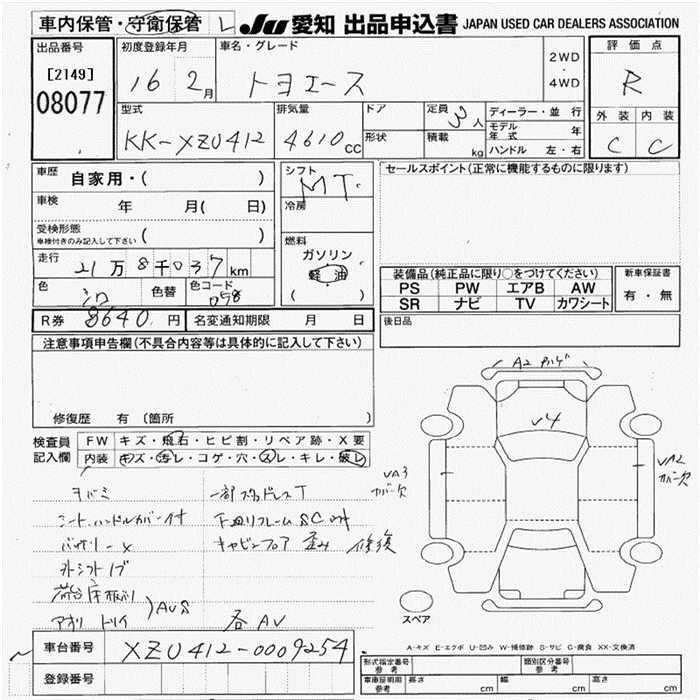 車内保管・守衛保管 L JU 愛知 出品申込書 JAPAN USED CAR DEALERS ASSOCIATION
出品番号 初度登録年月 車名・グレード 2WD・4WD 評価点
[2149] 16 2月 トヨエース R
08077
型式 排気量 ドア 定員 3人 ディーラー・並行 外装 内装
KK-XZU412 4610cc 形状 積載 kg モデル年式 年 C C
ハンドル 左・右
車歴 自家用・( ) シフト MT セールスポイント(正常に機能するものに限ります)
車検 年 月( 日) 冷房
受検形態 車検付きのみ記入して下さい ( ) 燃料
走行 21万8千037km ガソリン 装備品(純正品に限り○をつけてください) 新車保証書
色 シロ 色替 色コード 058 軽油 PS PW エアB AW 有・無
( ) SR ナビ TV カワシート
R券 8640円 名変通知期限 月 日 後日品
注意事項申告欄(不具合内容等は具体的に記入して下さい)
修復歴 有 (箇所 )
検査員記入欄 FW キズ・飛石・ヒビ割・リペア跡・X要
内装 キズ・汚レ・コゲ・穴・スレ・キレ・破レ
A2
V4
VA3 カバー欠
VA2 カバー欠
シートハンドルカバー付
バッテリーX
キャビンフロア 歪み 修復
アオリ
各AV
スペア
車台番号 XZU412-0009254
登録番号
A-キズ E-エクボ U-凹み W-補修跡 S-サビ C-腐食 XX-交換済
形式指定番号 参考 類別区分番号 参考
車庫証明用 参考 長さ cm 幅 cm 高さ cm